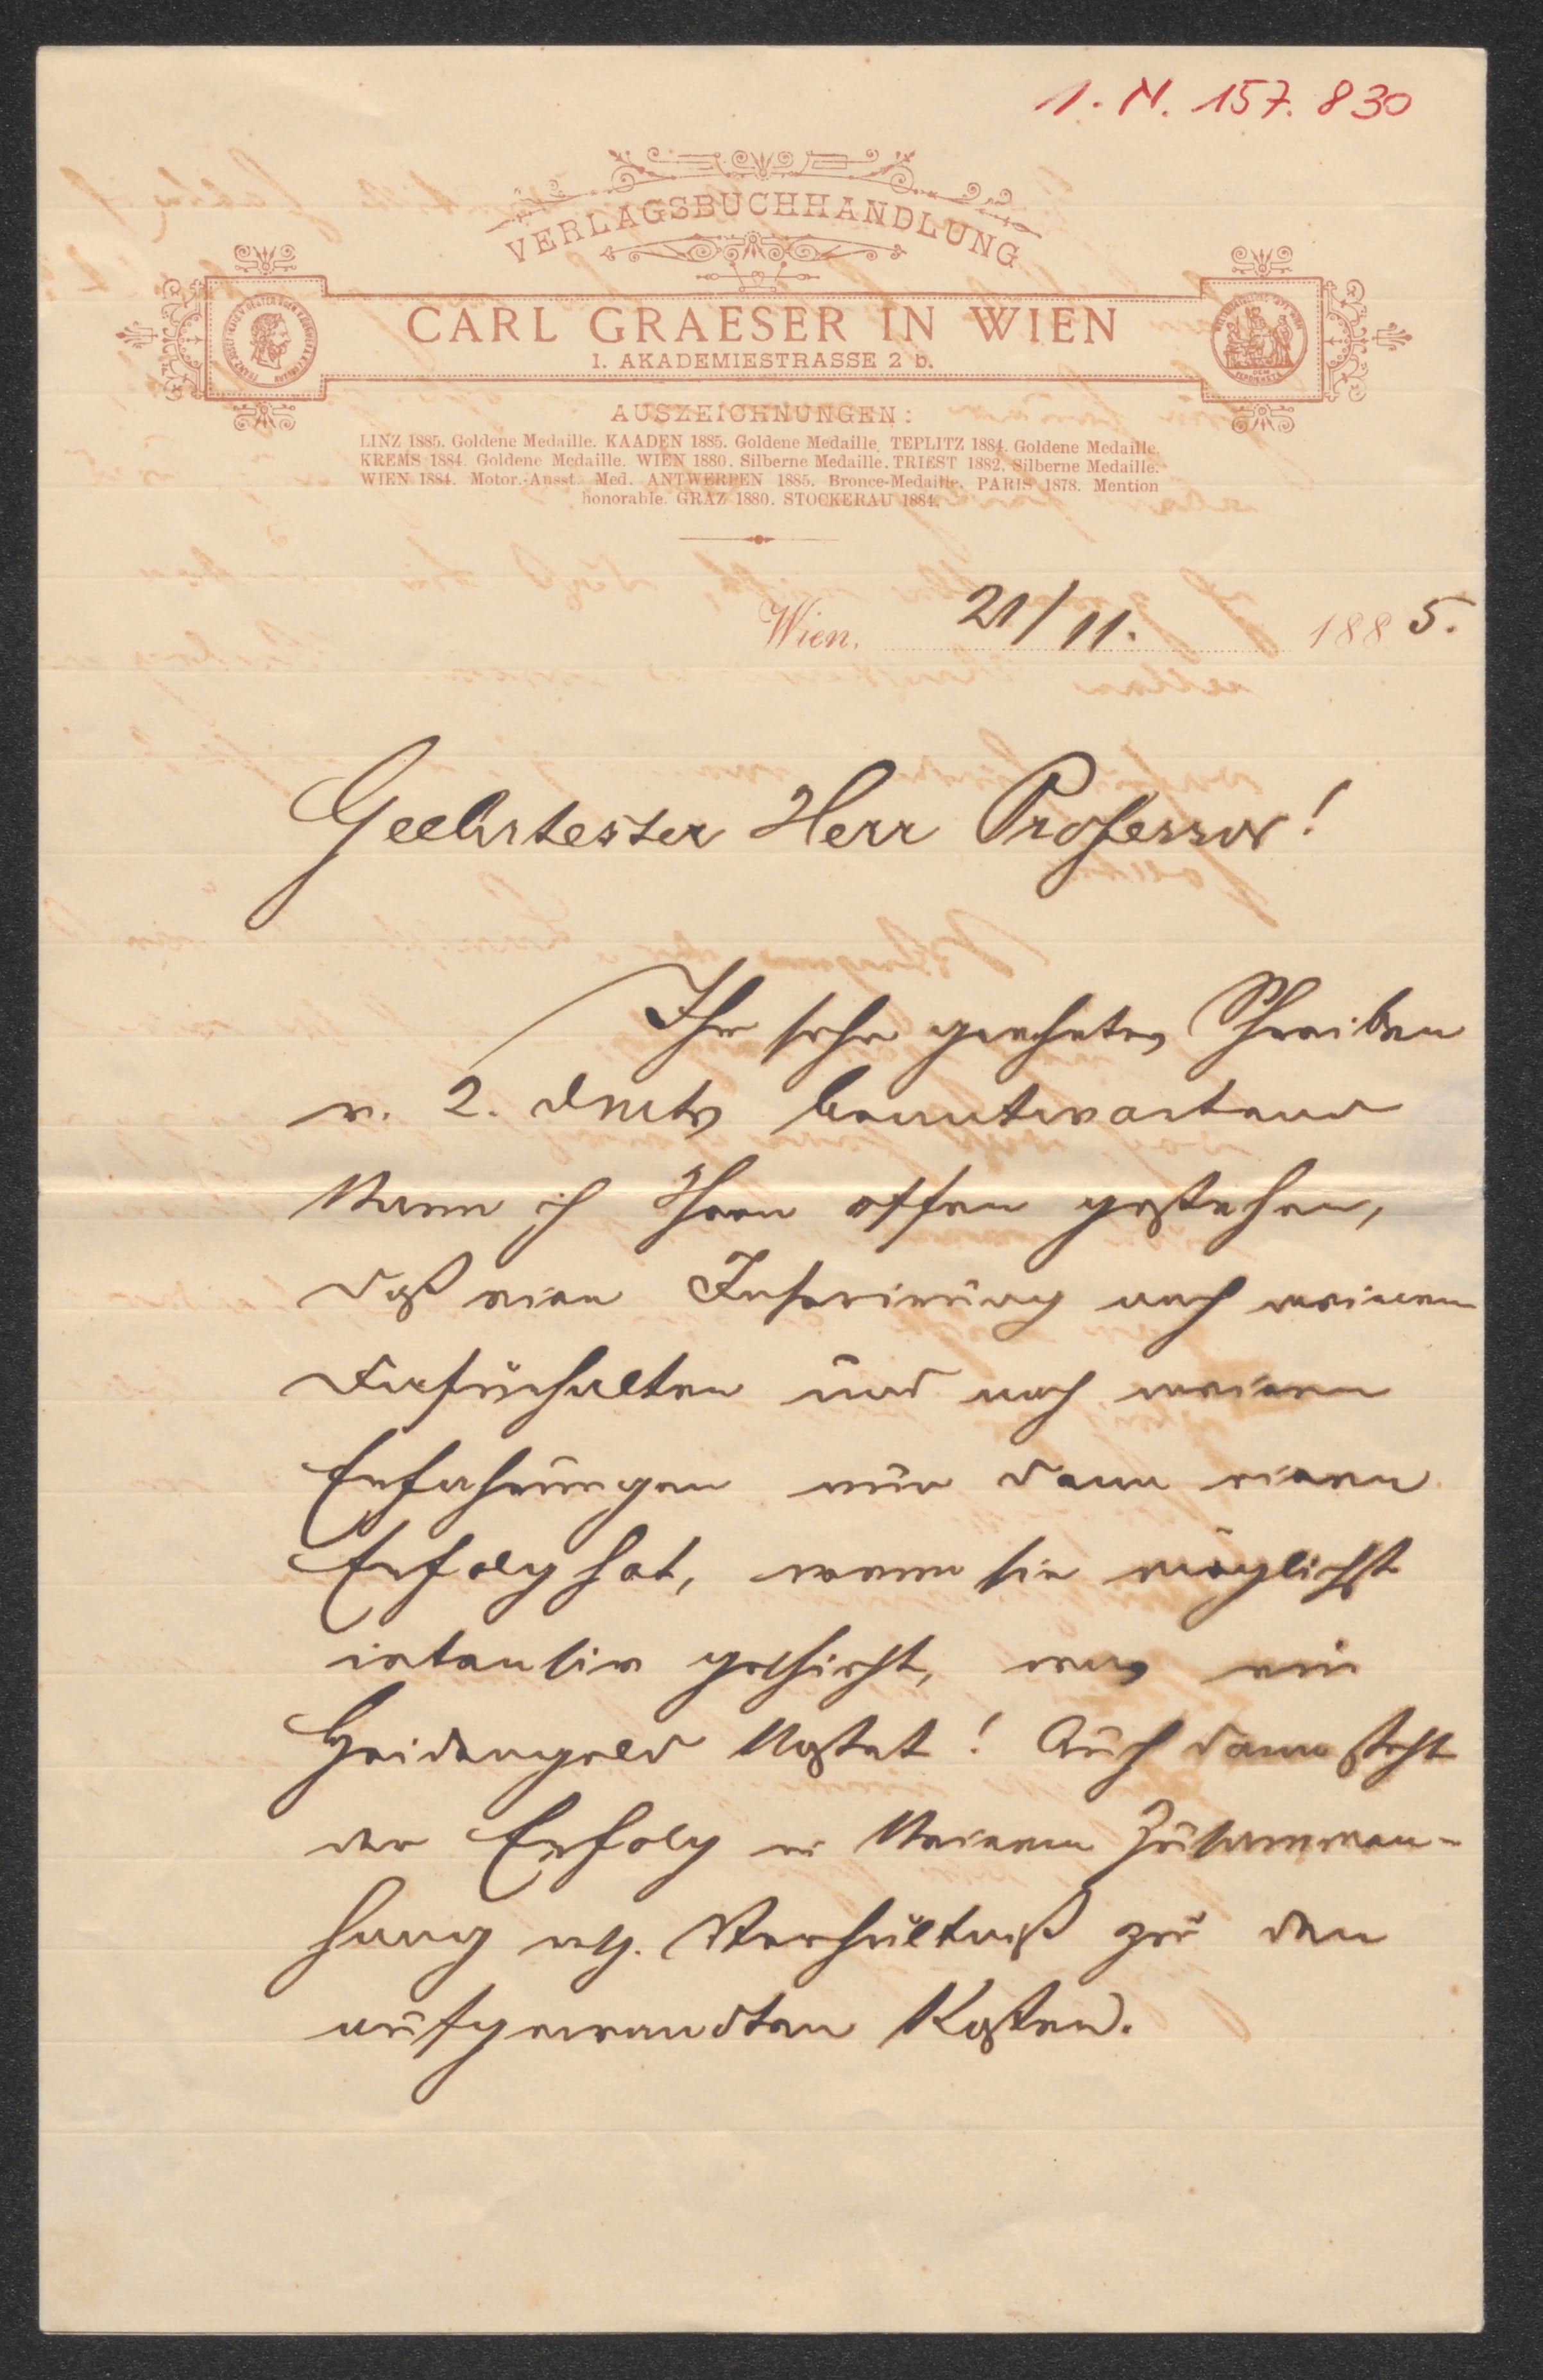 I. N. 157.830
VERLAGSBUCHHANDLUNG
CARL GRAESER IN WIEN
I. AKADEMIESTRASSE 2 b.
AUSZEICHNUNGEN:
LINZ 1885. Goldene Medaille. KAADEN 1885. Goldene Medaille. TEPLITZ 1884. Goldene Medaille.
KREMS 1884. Goldene Medaille. WIEN 1880. Silberne Medaille. TRIEST 1882. Silberne Medaille.
WIEN 1884. Motor.-Ausst. Med. ANTWERPEN 1885. Bronce-Medaille. PARIS 1878. Mention
honorable. GRAZ 1880. STOCKERAU 1884.
Wien, 21/11. 1885.
Geehrtester Herr Professor!
Ihr sehr geehrtes Schreiben
v. 2. dmts beantwortend
kann ich Ihnen offen gestehen,
daß eine Inserirung nach meinem
Dafürhalten und nach meinen
Erfahrungen nur dann einen
Erfolg hat, wenn sie möglichst
intensiv geschieht, was ein
Heidengeld kostet! Auch dann steht
der Erfolg in keinem Zusammen-
hang rsp. Verhältniß zu den
aufgewandten Kosten.